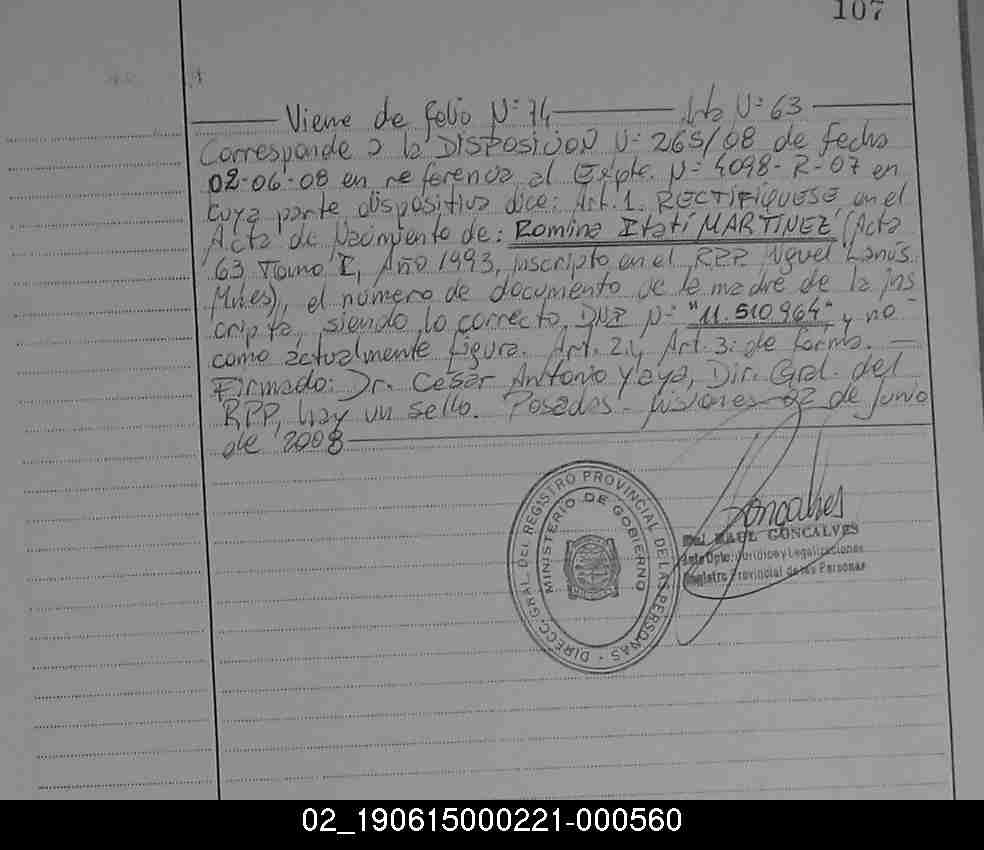 107
Viene de folio Nº 74 Acta Nº 63
Corresponde a la DISPOSICION Nº 265/08 de fecha
02-06-08 en referencia al Expte. Nº 4098-R-07 en
cuya parte dispositiva dice: Art. 1. RECTIFIQUESE en el
Acta de Nacimiento de: Romina Itatí MARTINEZ (Acta
63 Tomo I, Año 1993, inscripto en el RPP. Miguel Lanús.
Mnes), el número de documento de la madre de la ins
cripta, siendo lo correcto DNI Nº "11.510.964" y no
como actualmente figura. Art. 2 y Art. 3: de forma. —
Firmado: Dr. Cesar Antonio Yaya, Dir. Gral. del
RPP, hay un sello. Posadas - Misiones 02 de Junio
de 2008
DIRECC. GRAL. DEL REGISTRO PROVINCIAL DE LAS PERSONAS
MINISTERIO DE GOBIERNO
Goncalves
RAUL GONCALVES
Jefe Dpto. Jurídico y Legalizaciones
Registro Provincial de las Personas
02_190615000221-000560